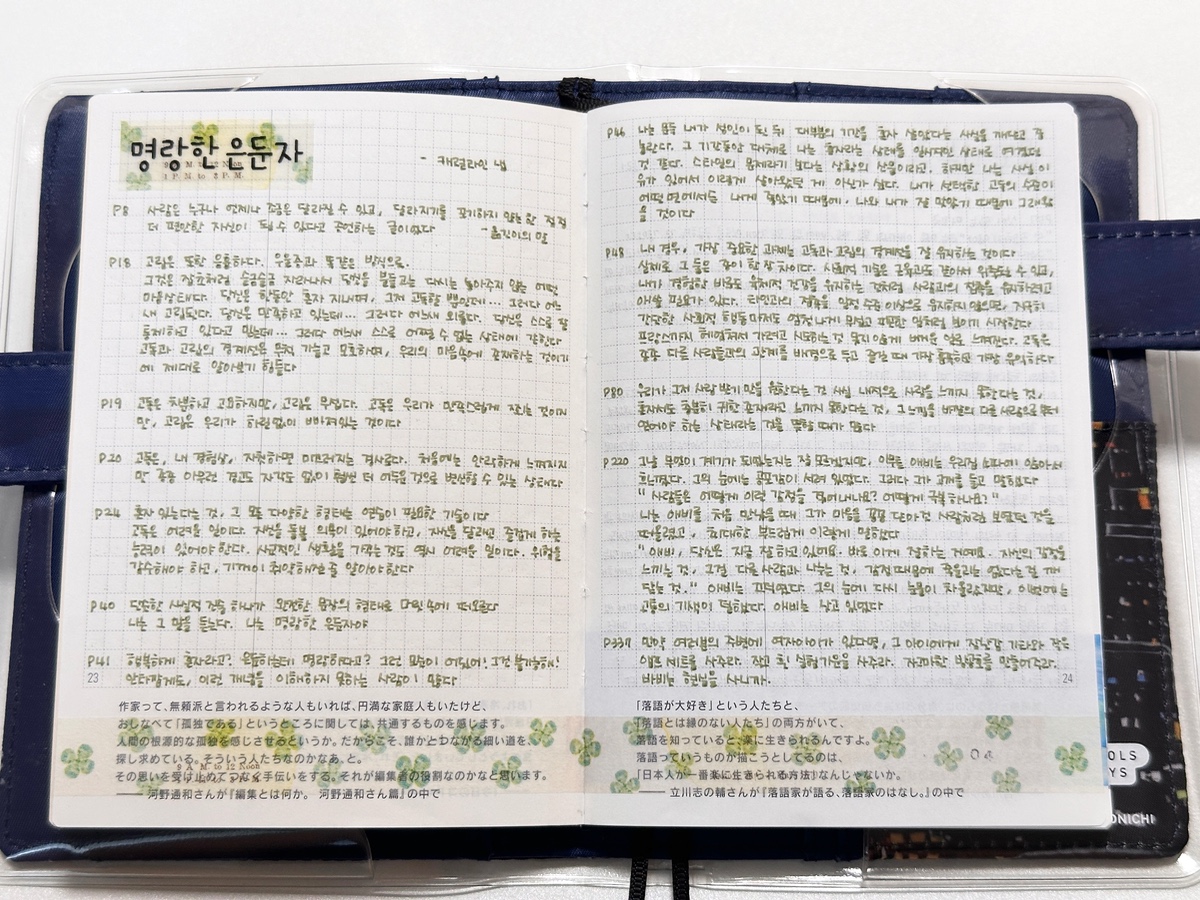 명랑한 은둔자
- 캐럴라인 냅
9 A.M. to 12 Noon
1 P.M. to 2 P.M.
P8 사람은 누구나 언제나 조금은 달라질 수 있고, 달라지기를 포기하지 않는 한 점점
더 편안한 자신이 될 수 있다고 공언하는 글이었다 - 옮긴이의 말
P18 고립은 또한 음흉하다. 우울증과 똑같은 방식으로.
그것은 잡초처럼 슬금슬금 자라나서 당신을 붙들고는 다시는 놓아주지 않는 어떤
마음상태다. 당신은 한동안 혼자 지내며, 그저 고독할 뿐인데... 그러다 어느
새 고립된다. 당신은 만족하고 있는데... 그러다 어느새 외롭다. 당신은 스스로 잘
통제하고 있다고 믿는데... 그러다 어느새 스스로 어쩔 수 없는 상태에 갇힌다
고독과 고립의 경계선은 무척 가늘고 모호하며, 우리의 마음속에 존재하는 것이기
에 제대로 알아보기 힘들다
P19 고독은 차분하고 고요하지만, 고립은 무섭다. 고독은 우리가 만족스럽게 쬐는 것이지
만, 고립은 우리가 하릴없이 빠져있는 것이다
P20 고독은, 내 경험상, 자칫하면 미끄러지는 경사로다. 처음에는 안락하게 느껴지지
만 종종 아무런 경고도 자각도 없이 훨씬 더 어두운 것으로 변신할 수 있는 상태다
P24 혼자 있는다는 것, 그 모든 다양한 형태는 연습이 필요한 기술이다
고독은 어려운 일이다. 자신을 돌볼 의욕이 있어야 하고, 자신을 달래고 즐겁게 하는
능력이 있어야 한다. 사교적인 생활을 가꾸는 것도 역시 어려운 일이다. 위험을
감수해야 하고, 기꺼이 취약해질 줄 알아야 한다
P40 단순한 사실적 진술 하나가 완전한 문장의 형태로 머릿속에 떠오른다
나는 그 말을 듣는다. 나는 명랑한 은둔자야
P41 행복하게 혼자라고? 은둔하는데 명랑하다고? 그런 모순이 어딨어! 그건 불가능해!
안타깝게도, 이런 개념을 이해하지 못하는 사람이 많다
23
作家って、無頼派と言われるような人もいれば、円満な家庭人もいたけど、
おしなべて「孤独である」というところに関しては、共通するものを感じます。
人間の根源的な孤独を感じさせるというか。だからこそ、誰かとつながる細い道を、
探し求めている。そういう人たちなのかなあ、と。
9 A.M. to 12 Noon
その思いを受け止めてつなぐ手伝いをする。それが編集者の役割なのかなと思います。
―― 河野通和さんが『編集とは何か。 河野通和さん篇』の中で
P46 나는 문득 내가 성인이 된 뒤 대부분의 기간을 혼자 살았다는 사실을 깨닫고 깜짝
놀란다. 그 기간동안 대체로 나는 혼자라는 상태를 일시적인 상태로 여겼던
것 같다. 스타일의 문제라기 보다는 상황의 산물이라고. 하지만 나는 사실 이
유가 있어서 이렇게 살아왔던 게 아닌가 싶다. 내가 선택한 고독의 수준이
어떤 면에서는 내게 잘맞기 때문에, 나와 내가 잘 맞았기 때문에 그래왔
을 것이다
P48 내 경우, 가장 중요한 과제는 고독과 고립의 경계선을 잘 유지하는 것이다
실제로 그 둘은 종이 한 장 차이다. 사회적 기술은 근육과도 같아서 위축될 수 있고,
내가 경험한 바로도 육체적 건강을 유지하는 것처럼 사람과의 접촉을 유지하려고
애쓸 필요가 있다. 타인과의 접촉을 일정 수준 이상으로 유지하지 않으면, 지극히
간단한 사회적 행동마저도 엄청나게 무섭고 피곤한 일처럼 보이기 시작한다
프랑스까지 헤엄쳐서 가려고 시도하는 것 못지않게 버거운 일로 느껴진다. 고독은
종종 다른 사람들과의 관계를 배경으로 두고 즐길 때 가장 흡족하고 가장 유익하다
P80 우리가 그저 사랑 받기 만을 원한다는 것 사실 내적으로 사랑을 느끼지 못한다는 것,
혼자서도 충분히 귀한 존재라고 느끼지 못한다는 것, 그 느낌을 바깥의 다른 사람으로부터
얻어야 하는 상태라는 것을 뜻할 때가 많다
P220 그날 무엇이 계기가 되었는지는 잘 모르겠지만, 이무렵 애비는 우리집 소파에 앉아서
흐느꼈다. 그의 눈에는 공포감이 서려 있었다. 그러다 그가 고개를 들고 말했다
" 사람들은 어떻게 이런 감정을 견뎌내나요? 어떻게 극복하나요? "
나는 애비를 처음 만났을 때 그가 마음을 꽁꽁 닫아건 사람처럼 보였던 것을
떠올렸고, 최대한 부드럽게 이렇게 말했다
" 애비, 당신은 지금 잘 하고 있어요. 바로 이게 잘하는 거예요. 자신의 감정을
느끼는 것, 그걸 다른 사람과 나누는 것, 감정 때문에 죽을리는 없다는 걸 깨
닫는 것. " 애비는 끄덕였다. 그의 눈에 다시 눈물이 차올랐지만, 이번에는
고통의 기색이 덜했다. 애비는 살고 있었다
P337 만약 여러분의 주변에 여자아이가 있다면, 그 아이에게 장난감 기차와 작은
연장 세트를 사주라. 잡고 칠 실험기구를 사주라. 자그마한 발포드를 만들어주라.
바비는 현실을 사니까.
24
「落語が大好き」という人たちと、
「落語とは縁のない人たち」の両方がいて、
落語を知っていると、楽に生きられるんですよ。
落語っていうものが描こうとしてるのは、
「日本人が一番楽に生きられる方法」なんじゃないか。
―― 立川志の輔さんが『落語家が語る、落語家のはなし。』の中で
OLS
YS
ONICHI